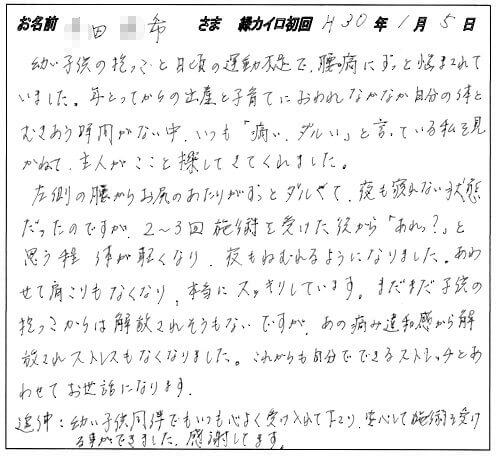 お名前 田 希 さま 緑カイロ初回 H30年1月5日
幼い子供の抱っこと日頃の運動不足で、腰痛にずっと悩まされて
いました。年とってからの出産と子育てにおわれなかなか自分の体と
むきあう時間がない中、いつも「痛い、ダルい」と言っている私を見
かねて、主人がここを探してきてくれました。
左側の腰からお尻のあたりがずっとダルくて、夜も寝れない状態
だったのですが、2〜3回施術を受けた後から「あれっ?」と
思う程体が軽くなり、夜もねむれるようになりました。あわ
せて肩こりもなくなり、本当にスッキリしています。まだまだ子供の
抱っこからは解放されそうもないですが、あの痛み違和感から解
放されストレスもなくなりました。これからも自分でできるストレッチとあ
わせてお世話になります。
追伸:幼い子供同伴でもいつも心よく受け入れて下さり、安心して施術を受け
る事ができました。感謝してます。